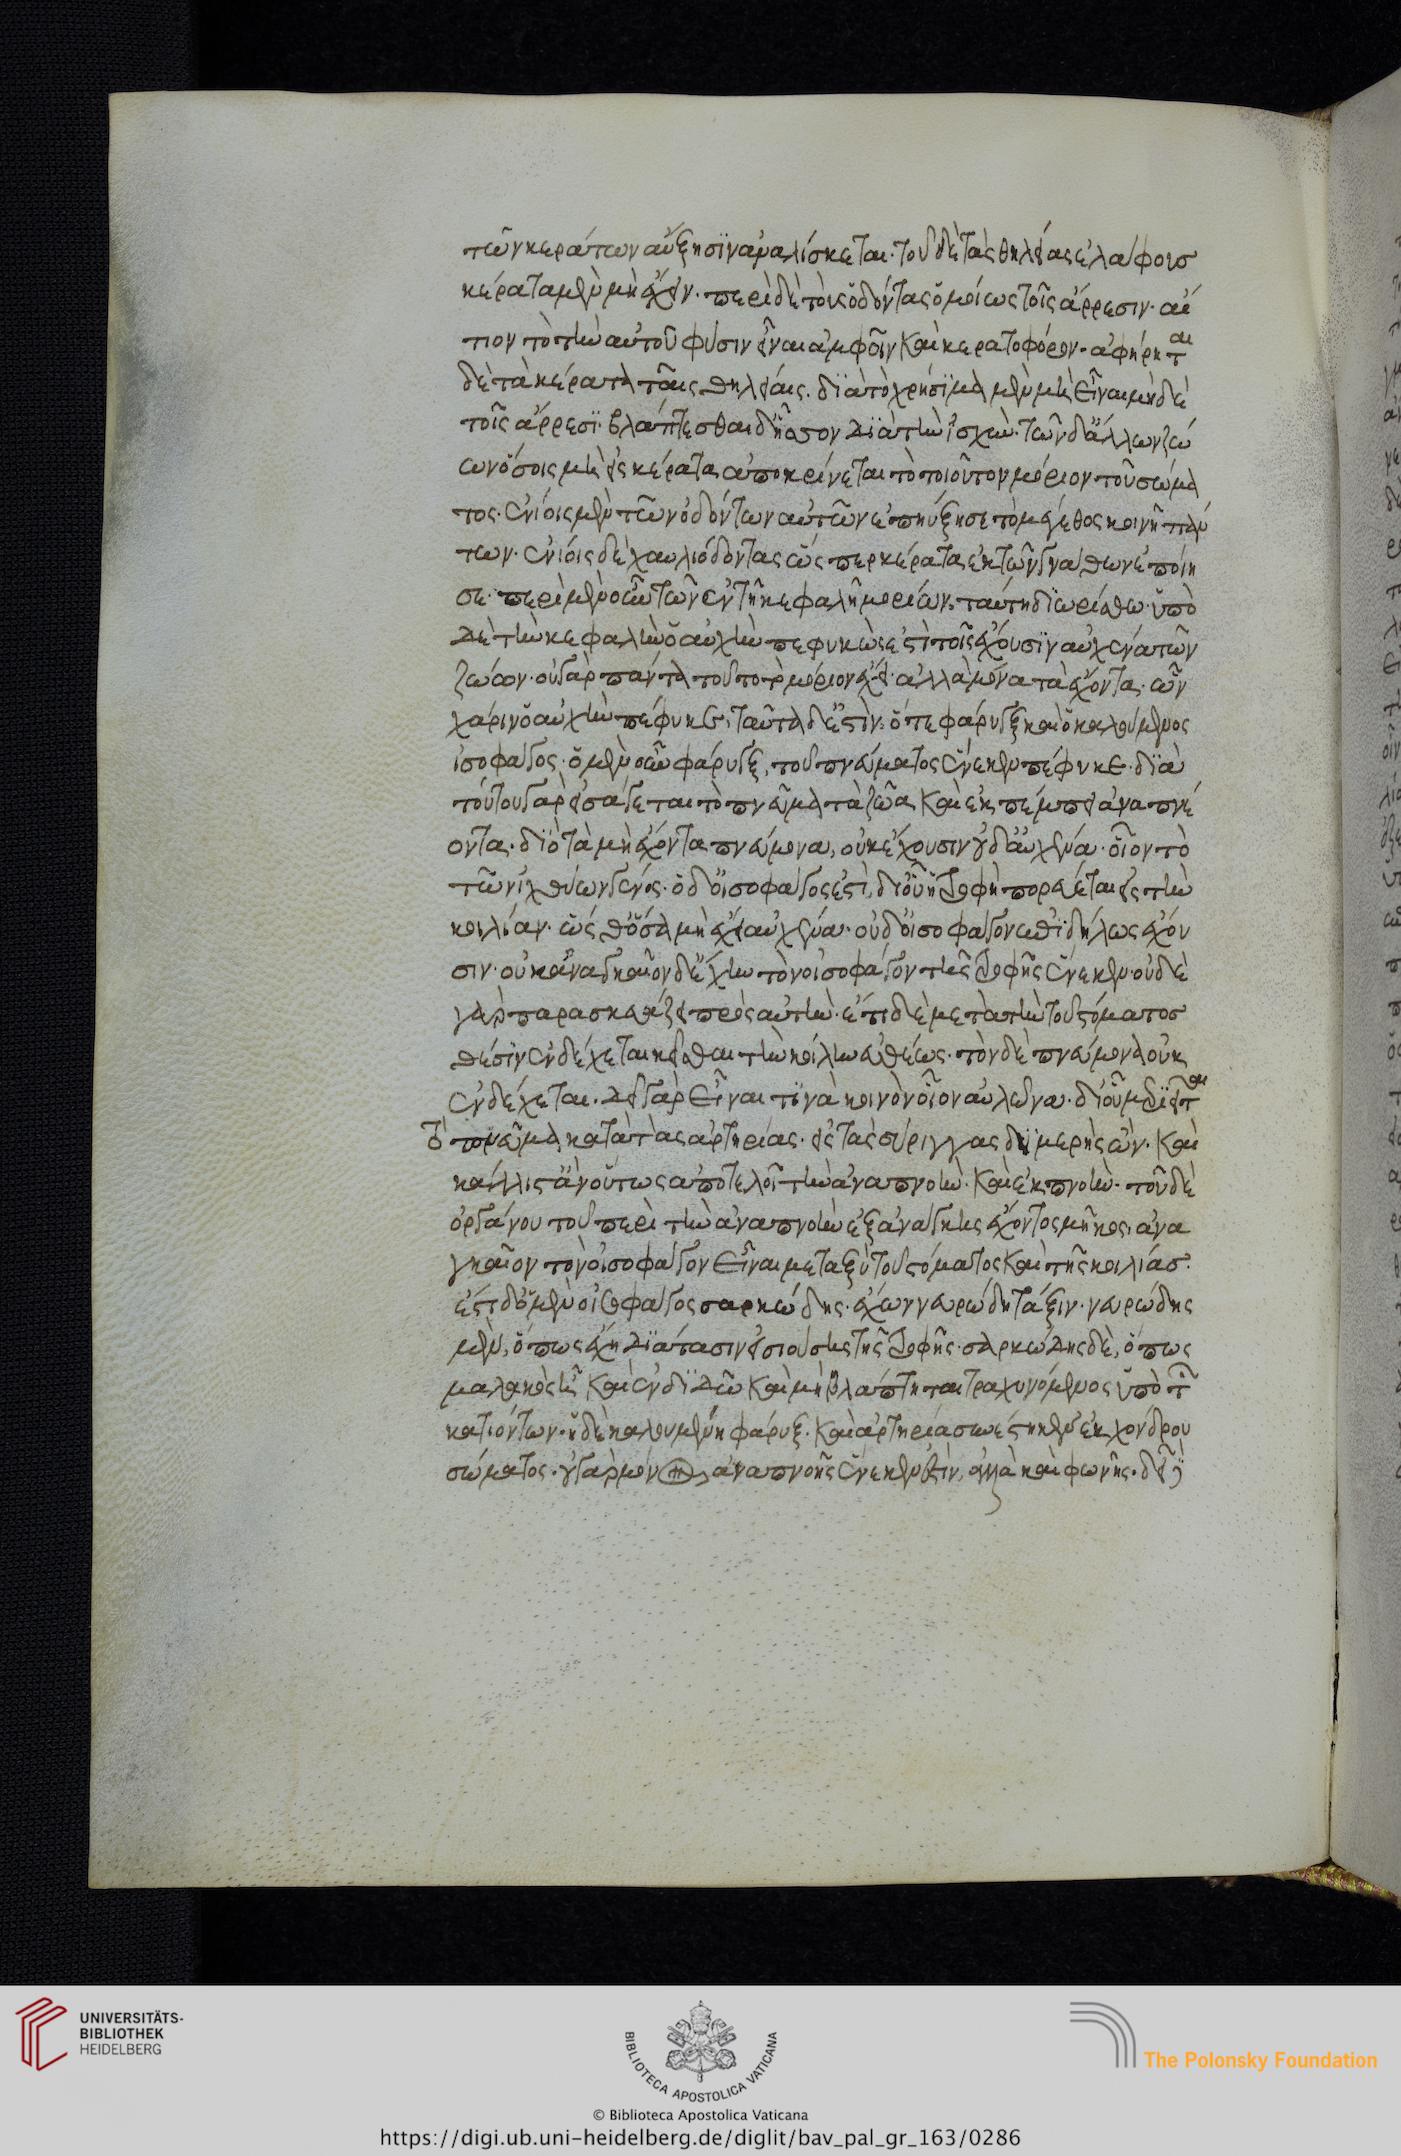 τῶν κεράτων αὔξησϊν ἀναλίσκεται· τοῦ δὲ τὰς θηλείας ἐλάφους
κέρατα μὲν μὴ ἔχειν· περὶ δὲ τοὺς ὀδόντας ὁμοίως τοῖς ἄρρεσιν· αἴ
τιον τὸ τὴν αὐτοῦ φύσιν εἶναι ἀμφοῖν καὶ κερατοφόρον· ἀφήρηται
δὲ τὰ κέρατα ταῖς θηλείαις· διὰ τὸ χρήσϊμα μὲν μὴ εἶναι μηδὲ
τοῖς ἄρρεσϊ· βλάπτεσθαι δ' ἧττον διὰ τὴν ἰσχὺν· τῶν δ' ἄλλων ζώ
ων ὅσοις μὴ εἰς κέρατα ἀποκρίνεται τὸ τοιοῦτον μόριον τοῦ σώμα
τος· ἐνίοις μὲν τῶν ὀδόντων αὐτῶν ἐπηύξησε τὸ μέγεθος κοινῇ πάν
των· ἐνίοις δὲ χαυλιόδοντας ὥς περ κέρατα ἐκ τῶν γνάθων ἐποίη
σε· περὶ μὲν οὖν τῶν ἐν τῇ κεφαλῇ μορίων, ταύτη διωρίσθω· ὑπὸ
δὲ τὴν κεφαλὴν ὁ αὐχὴν πεφυκώς ἐστὶ τοῖς ἔχουσϊν αὐχένα τῶν
ζώων· οὐ γὰρ πάντα τοῦτο τὸ μόριον ἔχει· ἀλλὰ μόνα τὰ ἔχοντα ὧν
χάριν ὁ αὐχὴν πέφυκε· ταῦτα δ' ἐστὶν· ὅ τε φάρυγξ καὶ ὁ καλούμενος
οἰσοφάγος· ὁ μὲν οὖν φάρυγξ, τοῦ πνεύματος ἕνεκεν πέφυκε· διὰ
τούτου γὰρ εἰσάγεται τὸ πνεῦμα τὰ ζῶα καὶ ἐκπέμπει ἀναπνέ
οντα· διὸ τὰ μὴ ἔχοντα πνεύμονα, οὐκ ἔχουσιν οὐδ' αὐχένα· οἷον τὸ
τῶν ἰχθύων γένος· ὁ δ' οἰσοφάγος ἐστὶ, δι' οὗ ἡ τροφὴ πορεύεται εἰς τὴν
κοιλίαν· ὥσθ' ὅσα μὴ ἔχει αὐχένα· οὐδ' οἰσοφάγον ἐπιδήλως ἔχου
σιν· οὐκ ἀναγκαῖον δ' ἔχειν τὸν οἰσοφάγον τῆς τροφῆς ἕνεκεν· οὐδὲ
γὰρ παρασκευάζει πρὸς αὐτὴν· ἔτι δὲ μετὰ τὴν τοῦ στόματος
θέσϊν ἐνδέχεται κεῖσθαι τὴν κοιλίαν εὐθέως· τὸν δὲ πνεύμονα οὐκ
ἐνδέχεται. δεῖ γὰρ εἶναι τϊνὰ κοινὸν οἷον αὐλῶνα· δι' οὗ μερϊεῖται
τὸ πνεῦμα κατὰ τὰς ἀρτηρίας· εἰς τὰς σύριγγας διμερὴς ὢν· καὶ
κάλλιστ' ἂν οὕτως ἀποτελοῖ τὴν ἀναπνοὴν· καὶ ἐκπνοὴν· τοῦ δὲ
ὀργάνου τοῦ περὶ τὴν ἀναπνοὴν ἐξ ἀνάγκης ἔχοντος μῆκος, ἀνα
γκαῖον τὸν οἰσοφάγον εἶναι μεταξὺ τοῦ στόματος καὶ τῆς κοιλίας·
ἔστι δ' ὁ μὲν οἰσοφάγος σαρκώδης· ἔχων νευρώδη τάξιν· νευρώδης
μὲν, ὅπως ἔχη διάτασιν εἰσιούσης τῆς τροφῆς· σαρκώδης δὲ, ὅπως
μαλακὸς ᾖ καὶ ἐνδιδῶ καὶ μὴ βλάπτηται τραχυνόμενος ὑπὸ τῶν
κατιόντων· ἡ δὲ καλουμένη φάρυξ· καὶ ἀρτηρία συνέστηκεν ἐκ χονδρου
σώματος· οὐ γὰρ μόνον ἀναπνοῆς ἕνεκέν ἐστὶν, ἀλλὰ καὶ φωνῆς· δεῖ
UNIVERSITÄTS-
BIBLIOTHEK
HEIDELBERG
BIBLIOTECA APOSTOLICA VATICANA
The Polonsky Foundation
© Biblioteca Apostolica Vaticana
https://digi.ub.uni-heidelberg.de/diglit/bav_pal_gr_163/0286